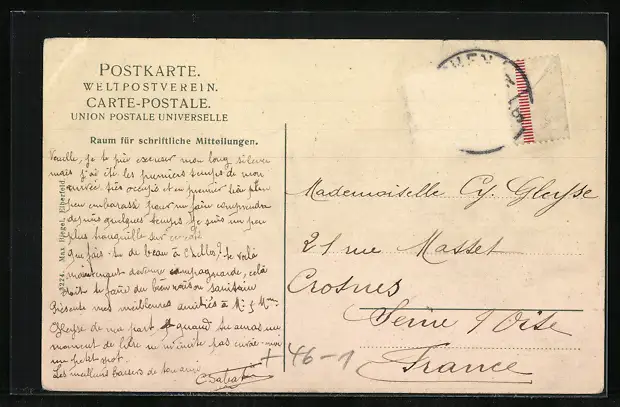 POSTKARTE.
WELTPOSTVEREIN.
CARTE-POSTALE.
UNION POSTALE UNIVERSELLE
Raum für schriftliche Mitteilungen.
je te prie excuser mon long silence
mais j'ai été les premiers temps de mon
arrivée très occupé et en premier
peu embarassé pour me faire comprendre
depuis quelques temps je suis un peu
plus tranquille sur
que fais-tu de beau à Chelles? te voilà
maintenant devenue campagnarde, celà
doit te faire du bien
Présente mes meilleures amitiés à Mr & Mme
Gleyse de ma part & quand tu auras un
moment de libre
un petit mot.
Les meilleurs baisers de ton ami
3224. Max Biegel, Elberfeld.
Mademoiselle Cy. Gleyse
21 rue Masset
Crosnes
Seine & Oise
France
+ 46-1